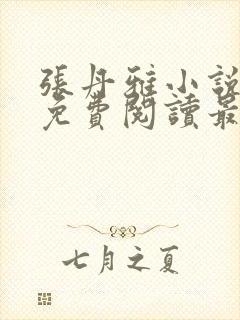 張丹雅小說
免費閱讀最
七月之夏